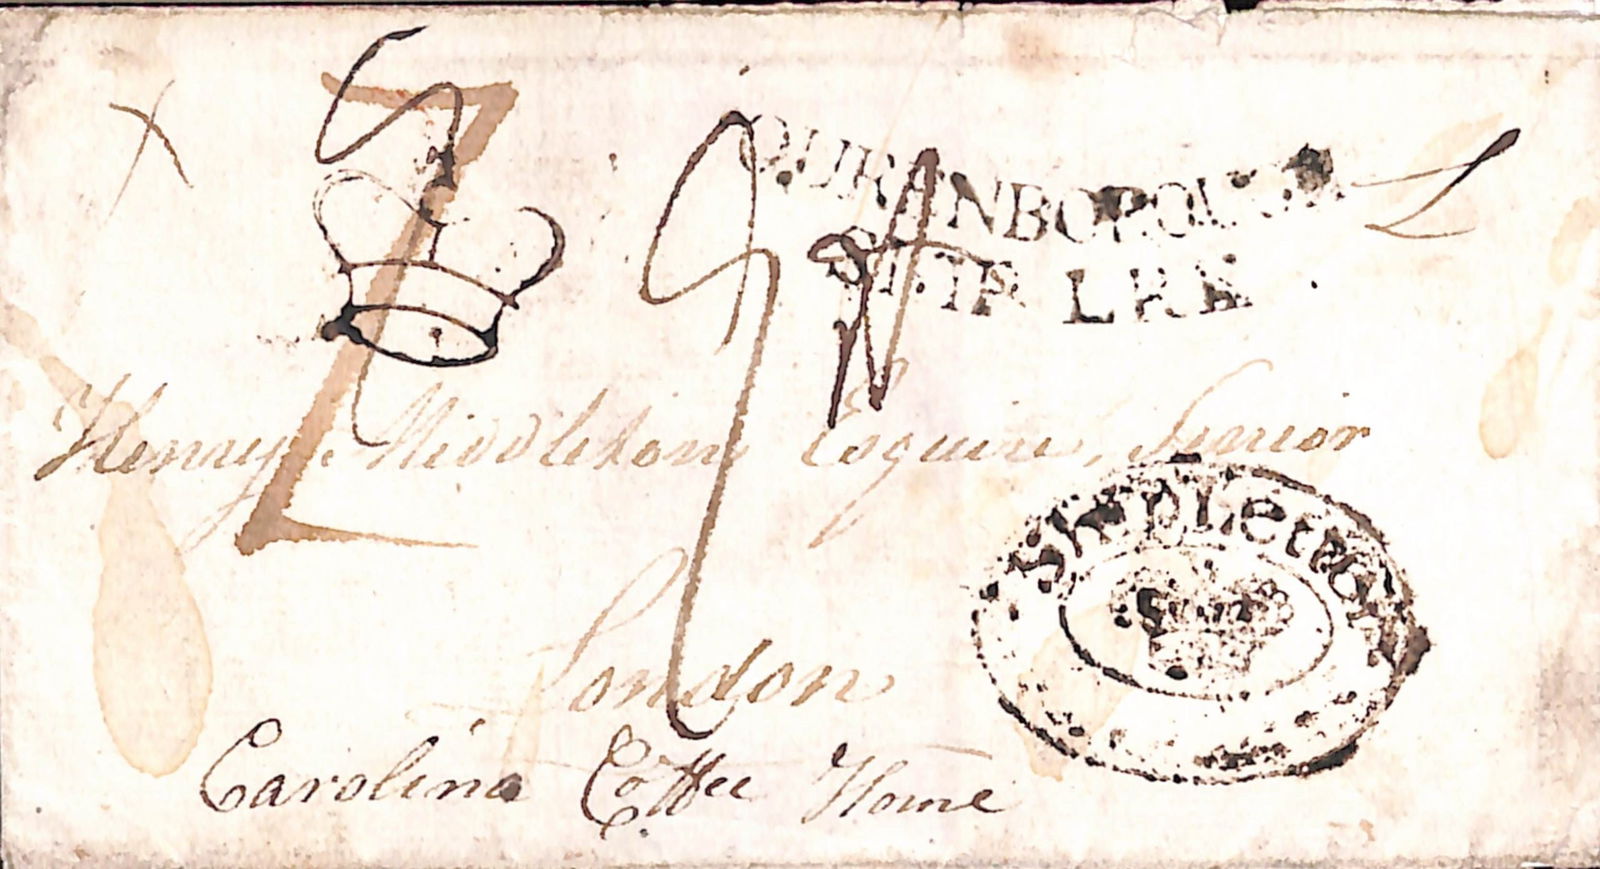 QUEENBOROUGH
SHIP LRE
Henry Middleton Esquire, Senior
London
Carolina Coffee House
Ship Letter